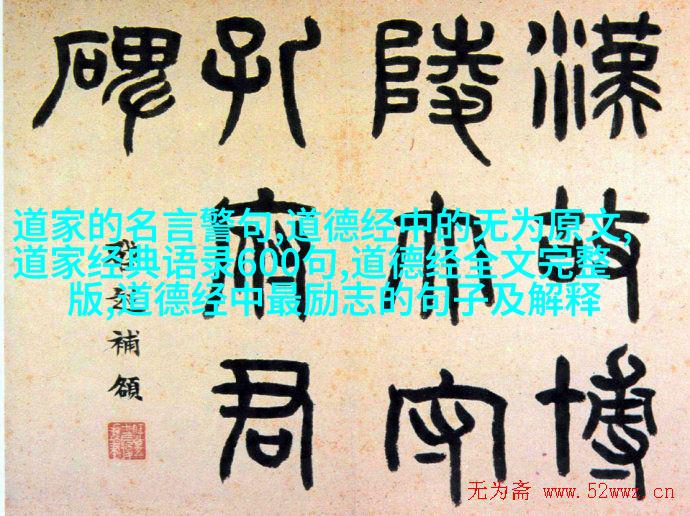 漢故博
陵太守
孔府君
碑
補額
道家的名言警句,道德经中的无为原文,
道家经典语录600句,道德经全文完整
版,道德经中最励志的句子及解释
无为斋 www.52wwz.cn